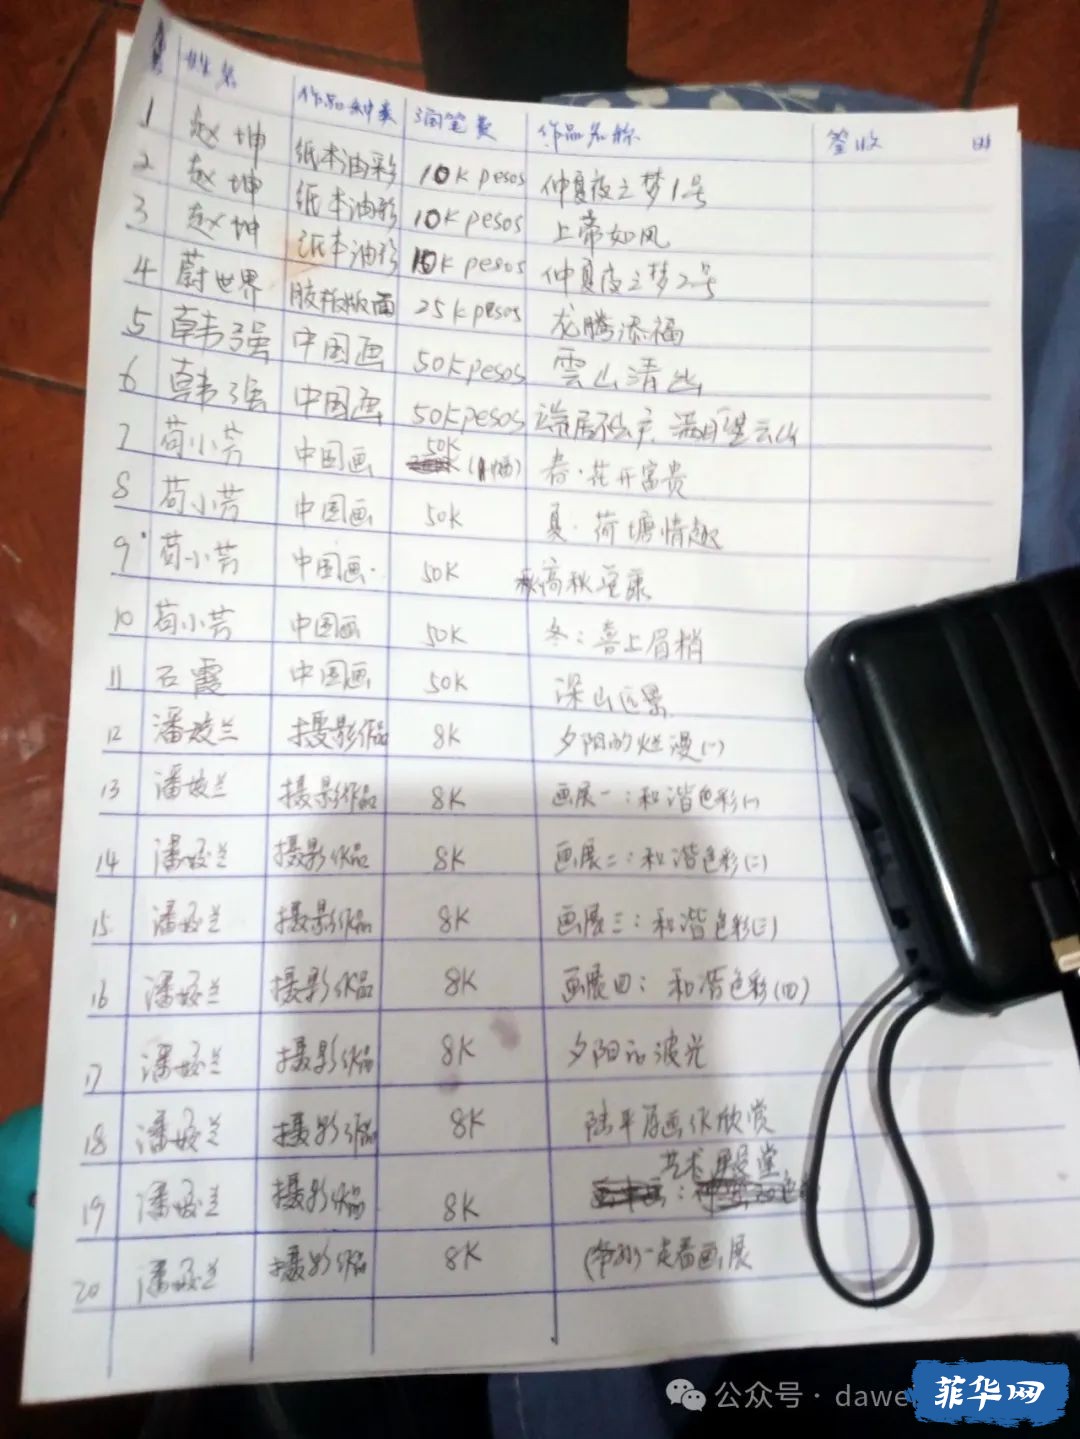 姓名 作品种类 润笔费 作品名称 签收
1 赵坤 纸本油彩 10K pesos 仲夏夜之梦1号
2 赵坤 纸本油彩 10K pesos 上帝如风
3 赵坤 纸本油彩 10K pesos 仲夏夜之梦2号
4 蔚世界 胶板版画 25K pesos 龙腾添福
5 韩强 中国画 50K pesos 雲山清幽
6 韩强 中国画 50K pesos 端居不出户 满目望云山
7 荀小芳 中国画 50K (1幅) 春·花开富贵
8 荀小芳 中国画 50K 夏·荷塘情趣
9 荀小芳 中国画 50K
10 荀小芳 中国画 50K 冬:喜上眉梢
11 石霞 中国画 50K 深山远景
12 潘姣兰 摄影作品 8K 夕阳的烂漫(一)
13 潘姣兰 摄影作品 8K 画展一:和谐色彩(一)
14 潘姣兰 摄影作品 8K 画展二:和谐色彩(二)
15 潘姣兰 摄影作品 8K 画展三:和谐色彩(三)
16 潘姣兰 摄影作品 8K 画展四:和谐色彩(四)
17 潘姣兰 摄影作品 8K 夕阳的波光
18 潘姣兰 摄影作品 8K 陆平原画作欣赏
19 潘姣兰 摄影作品 8K 艺术殿堂
20 潘姣兰 摄影作品 8K 一走看画展
公众号·dawe
菲华网